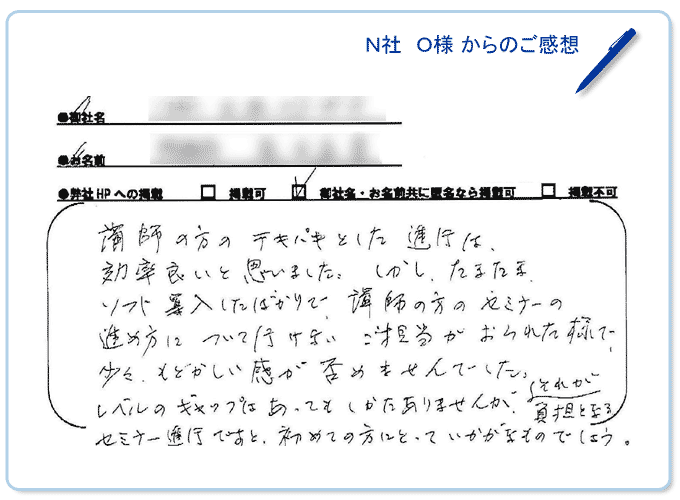 N社 O様 からのご感想
●御社名
●お名前
●弊社HPへの掲載 □ 掲載可 ☑ 御社名・お名前共に匿名なら掲載可 □ 掲載不可
講師の方のテキパキとした進行は、
効率良いと思いました。しかし、たまたま
ソフト導入したばかりで、講師の方のセミナーの
進め方について行けない ご担当がおられた様で、
少々、もどかしい感が否めませんでした。
レベルのギャップはあってもしかたありませんが、それが負担となる
セミナー進行ですと、初めての方にとっていかがなものでしょう。